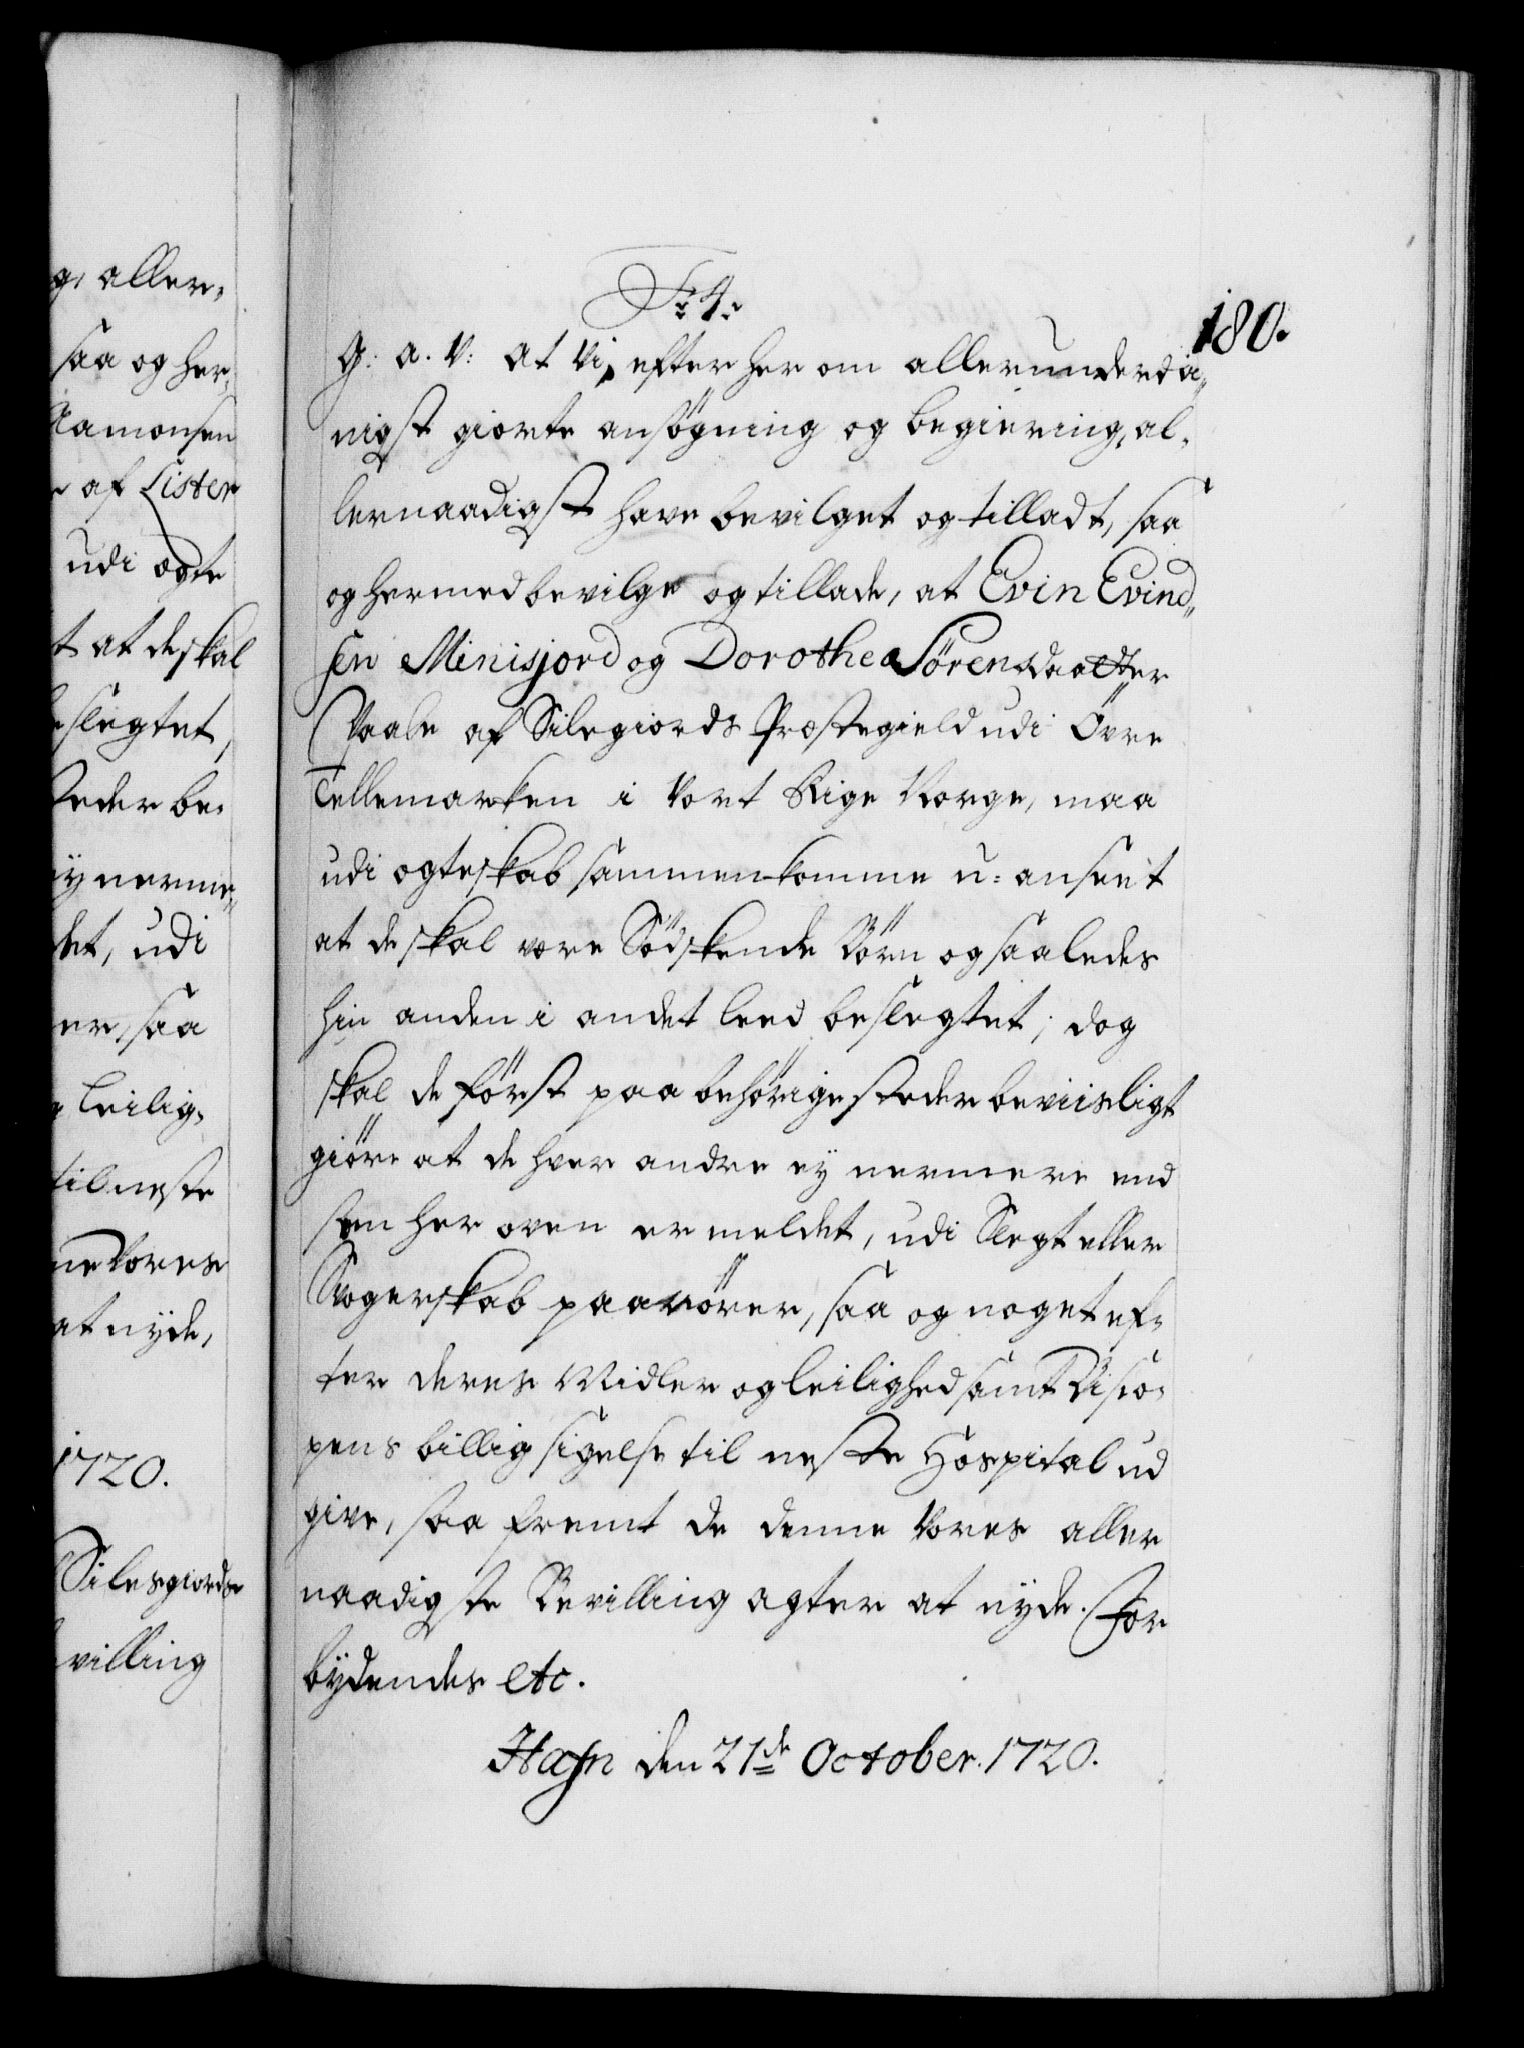 g, aller-
saa og her-
Aamonsen
af Lister
udi ægte
t at de skal
eslegtet,
steder be-
ey nerme-
det, udi
er, saa
Leilig-
til neste
ne Vores
at nyde,
1720.
Silesgiords
villing
F: 4:
180.
G: a. V: At Vi, efter her om allerunderdä-
nigst giorte ansøgning og begiering, al-
lernaadigst have bevilget og tilladt, saa
og hermed bevilge og tillade, at Evin Evind-
sen Minisjord og Dorothea Sörensdaatter
Vaale af Silegiords Præstegield udi Övre
Tellemarken i Vort Rige Norge, maa
udi ægteskab sammenkomme u-anseet
at de skal være Södskende Börn og saaledes
hin anden i andet leed beslegtet; dog
skal de först paa behörige steder beviisligt
giöre at de hver andre ey nermere end
som her oven er meldet, udi Slegt eller
Svogerskab paarörer, saa og noget ef-
ter deres Midler og leilighed samt Bisco-
pens billig sigelse til neste Hospital ud
give, saa fremt de denne Vores aller
naadigste Bevilling agter at nyde. For
bydendes etc.
Hafn den 21de October. 1720.